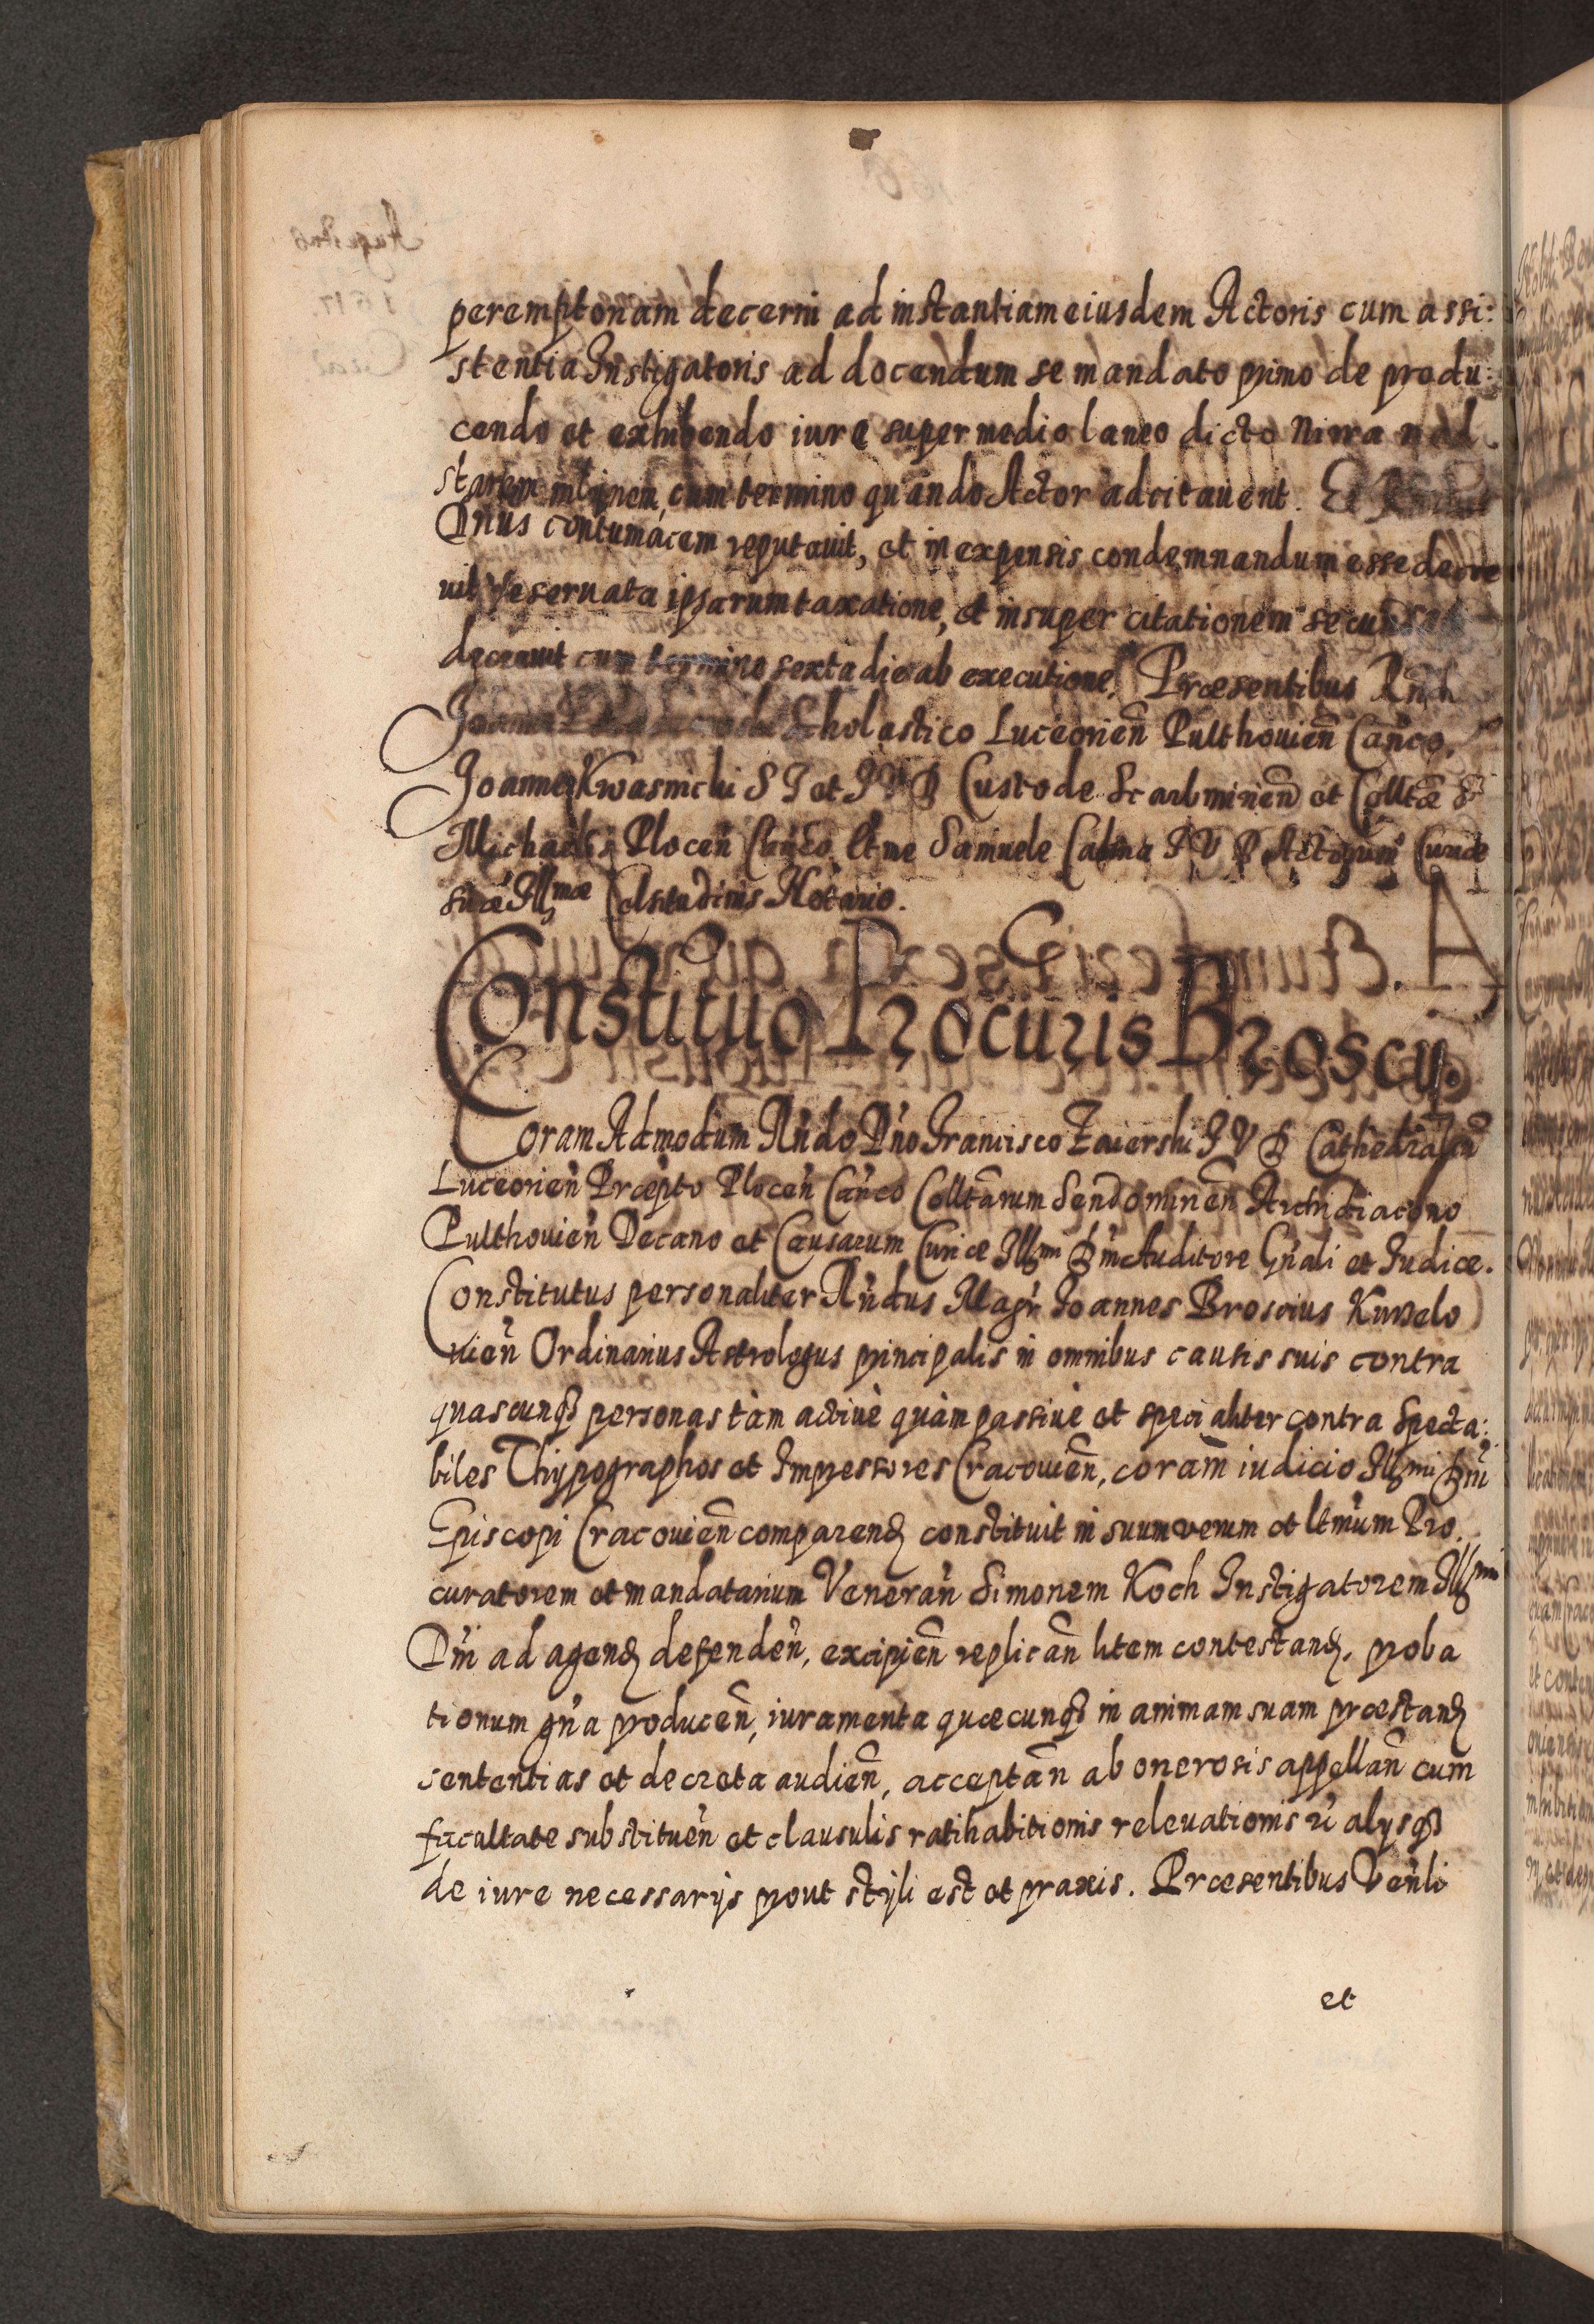 peremptoriam decerni ad instantiam eiusdem Actoris cum assi:
stentia Instigatoris ad docendum se mandato primo de produ:
cendo et exhibendo iure super medio laneo dicto
cum termino quando Actor adcitauerit. Et
Dnus contumacem reputauit, et in expensis condemnandum esse decre
uit reseruata ipsarum taxatione, et insuper citationem
decreuit cum termino sexta die ab executione. Præsentibus Rndis
Scholastico Luceorien̄ Pulthouien̄ Can̄co,
Joanne Kwasnicki S J et J V D Custode Scarbmirien̄ et Colltæ S.
Michaelis Plocen̄ Can̄co, Et me Samuele J V D Actorum Curiæ
suæ Illmæ Celsitudinis Notario.
Constitutio Procūris Broscy.
Coram Admodum Rn̄do Dn̄o Francisco Zaierski J V D Cathedralium
Luceorien̄ Præpto Plocen̄ Can̄co Colltārum Sendomirien̄ Archidiacono
Pulthouien̄ Decano et Causarum Curiæ Illmi Dn̄i Auditore Gn̄ali et Judice.
Constitutus personaliter Rn̄dus Magr̄ Joannes Broscius Kurzelo
uien̄ Ordinarius Astrologus principalis in omnibus causis suis contra
quascunq3 personas tàm actiuè quàm passiuè et specialiter contra Specta:
biles Thypographos et Impressores Cracouien̄, coram iudicio Illmi Dn̄i
Episcopi Cracouien̄ comparend constituit in suum verum et ltm̄um Pro.
curatorem et mandatarium Veneran̄ Simonem Koch Instigatorem Illmi
Dn̄i ad agend defenden̄, excipien̄ replican̄ litem contestand. proba
tionum gn̄a producen̄, iuramenta quæcunq3 in animam suam præstand
sententias et decreta audien̄, acceptan̄ ab onerosis appellan̄ cum
facultate substituen̄ et clausulis ratihabitionis releuationis rī alysq3
de iure necessarijs prout styli est et praxis. Præsentibus Ven̄li
et